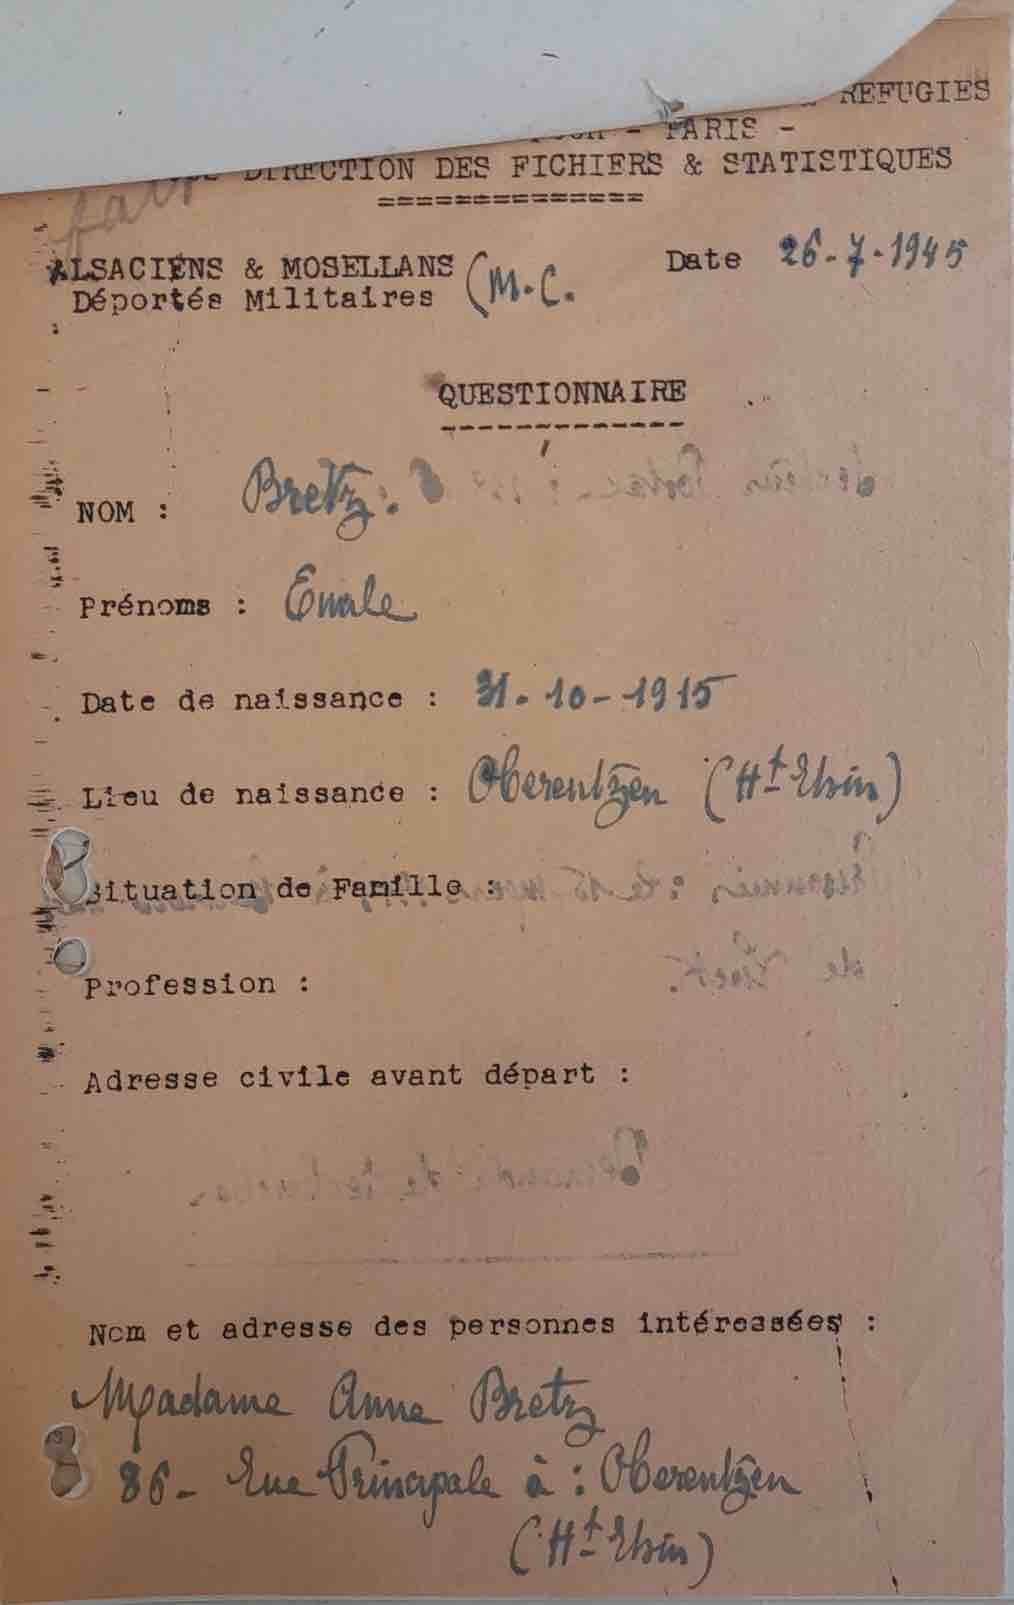 REFUGIES
- PARIS -
DIRECTION DES FICHIERS & STATISTIQUES
==============
fait
ALSACIENS & MOSELLANS
Déportés Militaires
(M.C.
Date 26-7-1945
QUESTIONNAIRE
-------------
NOM : Bretz.
Prénoms : Emile
Date de naissance : 31-10-1915
Lieu de naissance : Oberentzen (Ht Rhin)
Situation de Famille :
Profession :
Adresse civile avant départ :
Nom et adresse des personnes intéressées :
Madame Anne Bretz
86- Rue Principale à : Oberentzen
(Ht Rhin)